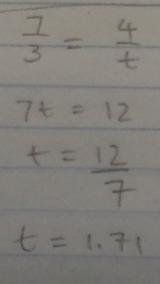 7/3 = 4/t
7t = 12
t = 12/7
t = 1.71